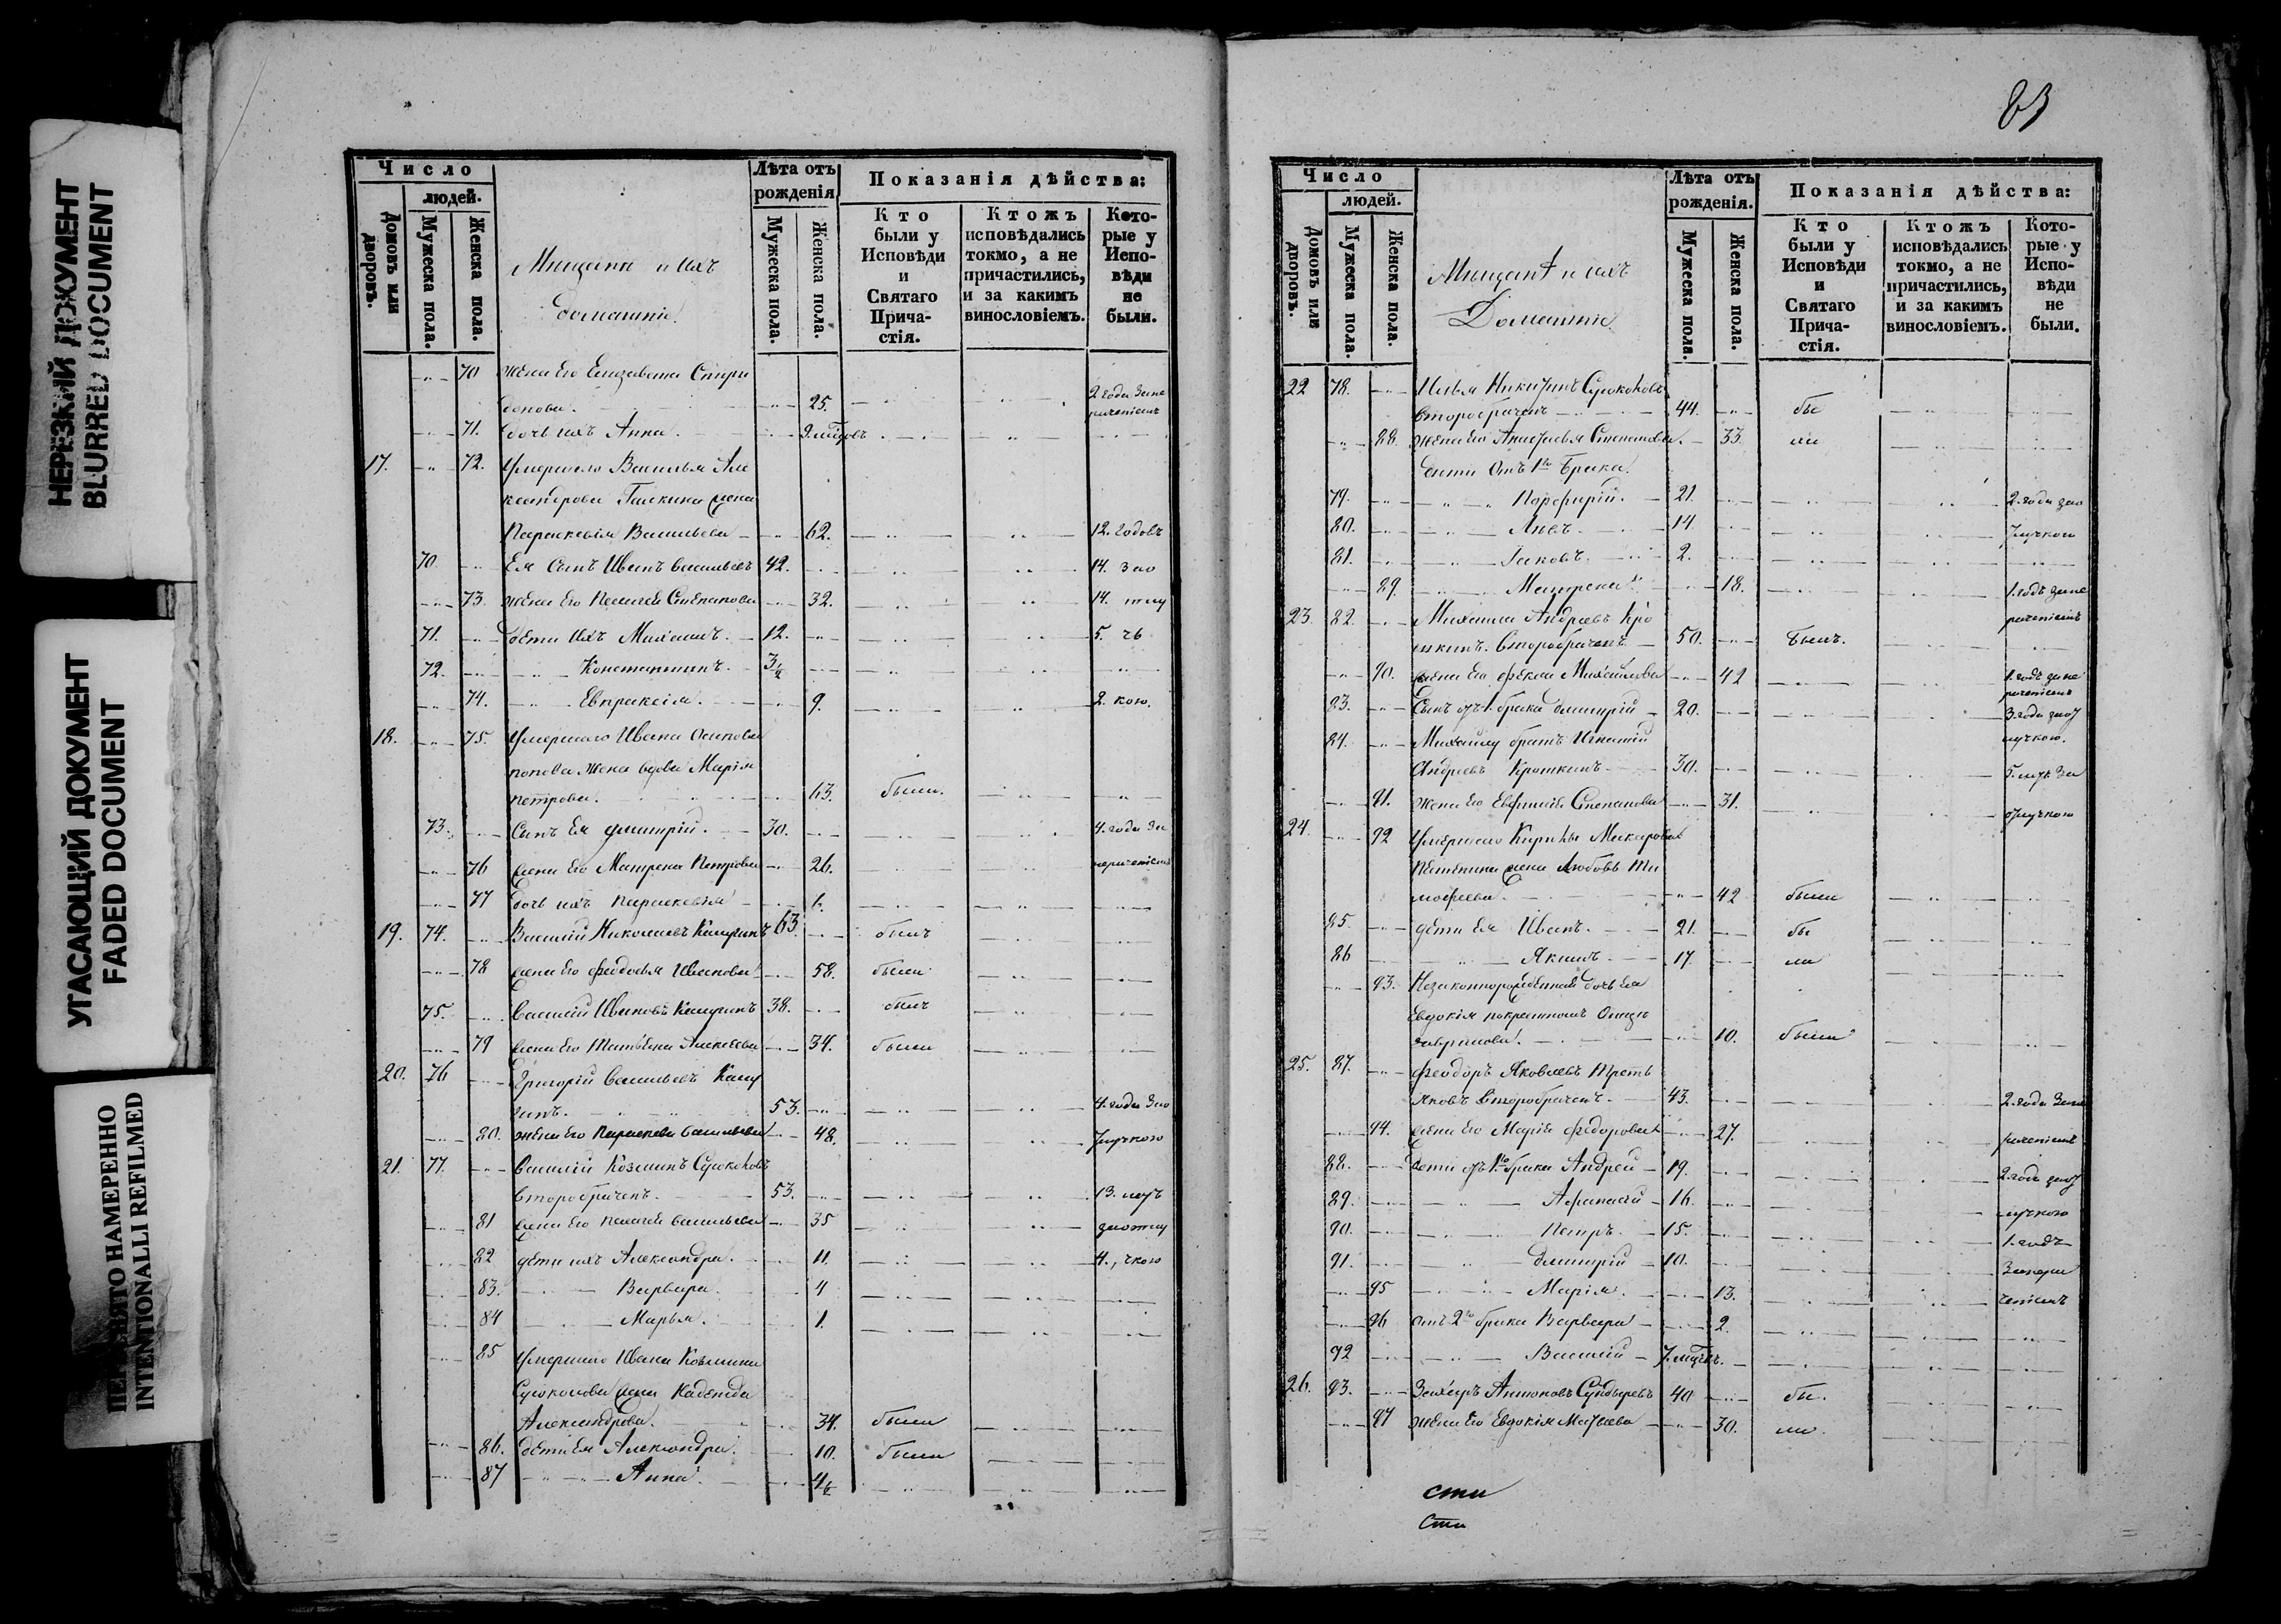 НЕРЕЗКИЙ ДОКУМЕНТ
BLURRED DOCUMENT
УГАСАЮЩИЙ ДОКУМЕНТ
FADED DOCUMENT
ПЕРЕСНЯТО НАМЕРЕННО
INTENTIONALLI REFILMED
Число
людей.
Домовъ или дворовъ.
Мужеска пола.
Женска пола.
Мищани и ихъ
домашніе.
Лѣта отъ
рожденія
Мужеска пола.
Женска пола.
Показанія дѣйства:
Кто
были у
Исповѣди
и
Святаго
Прича-
стія.
Ктожъ
исповѣдались
токмо, а не
причастились,
и за какимъ
винословіемъ.
Кото-
рые у
Испо-
вѣди
не
были.
70 жена его Елизавета Спири
донова. 25. 2 года за не
71. дочь ихъ Анна.
17. 72. Умершаго Василья Але
ксандрова Галкина жена
Параскевія Васильева 62. 12. годовъ
70 Ея сынъ Иванъ Васильевъ 42. 14. зао
73. жена его Пелагея Степанова 32. 14. тлу
71. дети ихъ Михаилъ. 12. 5. чь
72. Константинъ.
74. Евпраксія. 9. 2. кою.
18. 75. Умершаго Ивана Осипова
попова жена вдова Марія
петрова. 63. была.
73. Сынъ Ея Дмитрій. 30. 4. года за
76 жена его Матрена Петрова 26.
77 дочь ихъ Параскевія 6.
19. 74. Василій Николаевъ 63. былъ
78 жена его Феодосья Иванова 58. была
75. Василій Ивановъ 38. былъ
79 жена его Татьяна Алексеева 34. была
20. 76 Григорій Васильевъ
53. 4. года зао
80. жена его Параскева Васильева 48. тлучкою
21. 77. Василій Козминъ Сусоколовъ
второбраченъ. 53. 13. летъ
81 жена его Пелагея Васильева 35 заотлу
82 дети ихъ Александра. 11. 4., чкою
83. Варвара. 4
84 Марья. 1.
85 Умершаго Ивана Козмина
жена Надежда
Александрова. 34. была
86. дети ея Александра. 10. была
87 Анна.
83
Число
людей.
Домовъ или дворовъ.
Мужеска пола.
Женска пола.
Мищанѣ и ихъ
Домашніе
Лѣта отъ
рожденія.
Мужеска пола.
Женска пола.
Показанія дѣйства:
Кто
были у
Исповѣди
и
Святаго
Прича-
стія.
Ктожъ
исповѣдались
токмо, а не
причастились,
и за какимъ
винословіемъ.
Кото-
рые у
Испо-
вѣди
не
были.
22 78. Илья Никитинъ
второбраченъ 44. бы
88. жена его Анастасья Степанова. 33. ли
дети отъ 1го брака.
79. Порфирій. 21. 2. года зао
80. 14. тлучкою
81. Іаковъ. 2.
89. Матрена 18. 1. годъ зане
23. 82. Михаила Андреевъ Кро
шкинъ. второбраченъ 50. былъ.
90. жена его Фекла Михайлова 42 1. годъ зане
83. Сынъ отъ 1. брака Дмитрій 20. 3. года заот
84. Михайлу братъ Игнатій лучкою.
Андреевъ Крошкинъ 30. 5. летъ за
91. жена его Евфимія Степанова 31. отлучкою
24. 92 Умершаго Кирилы Макарова
жена Любовь Ти
мофеева. 42 была
85. дети ея Иванъ. 21. бы
86 Якимъ 17. ли
93. Незаконнорожденная дочь ея
Евдокія
10. была
25. 87. Феодоръ Яковлевъ Треть
яковъ второбраченъ. 43. 2. года зане
94. жена его Марія Федорова 27.
88. Дети отъ 1го брака Андрей 19. 2. года заот
89. Афанасій 16. лучкою
90. Петръ. 15. 1. годъ
91. Дмитрій 10.
95 Марія. 13.
96 отъ 2го брака Варвара 2.
92 Василій
26. 93. Захаръ Антоновъ 40 бы.
97 жена его Евдокія Матвѣева 30. ли.
сти
сти